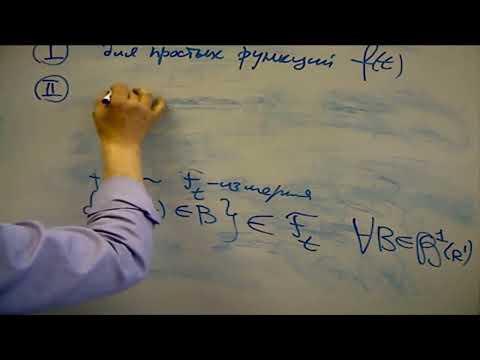 (I) для простых функций f(t)
(II)
~ F_t-измерим
) ∈ B } ∈ F_t ∀B∈β¹(R¹)